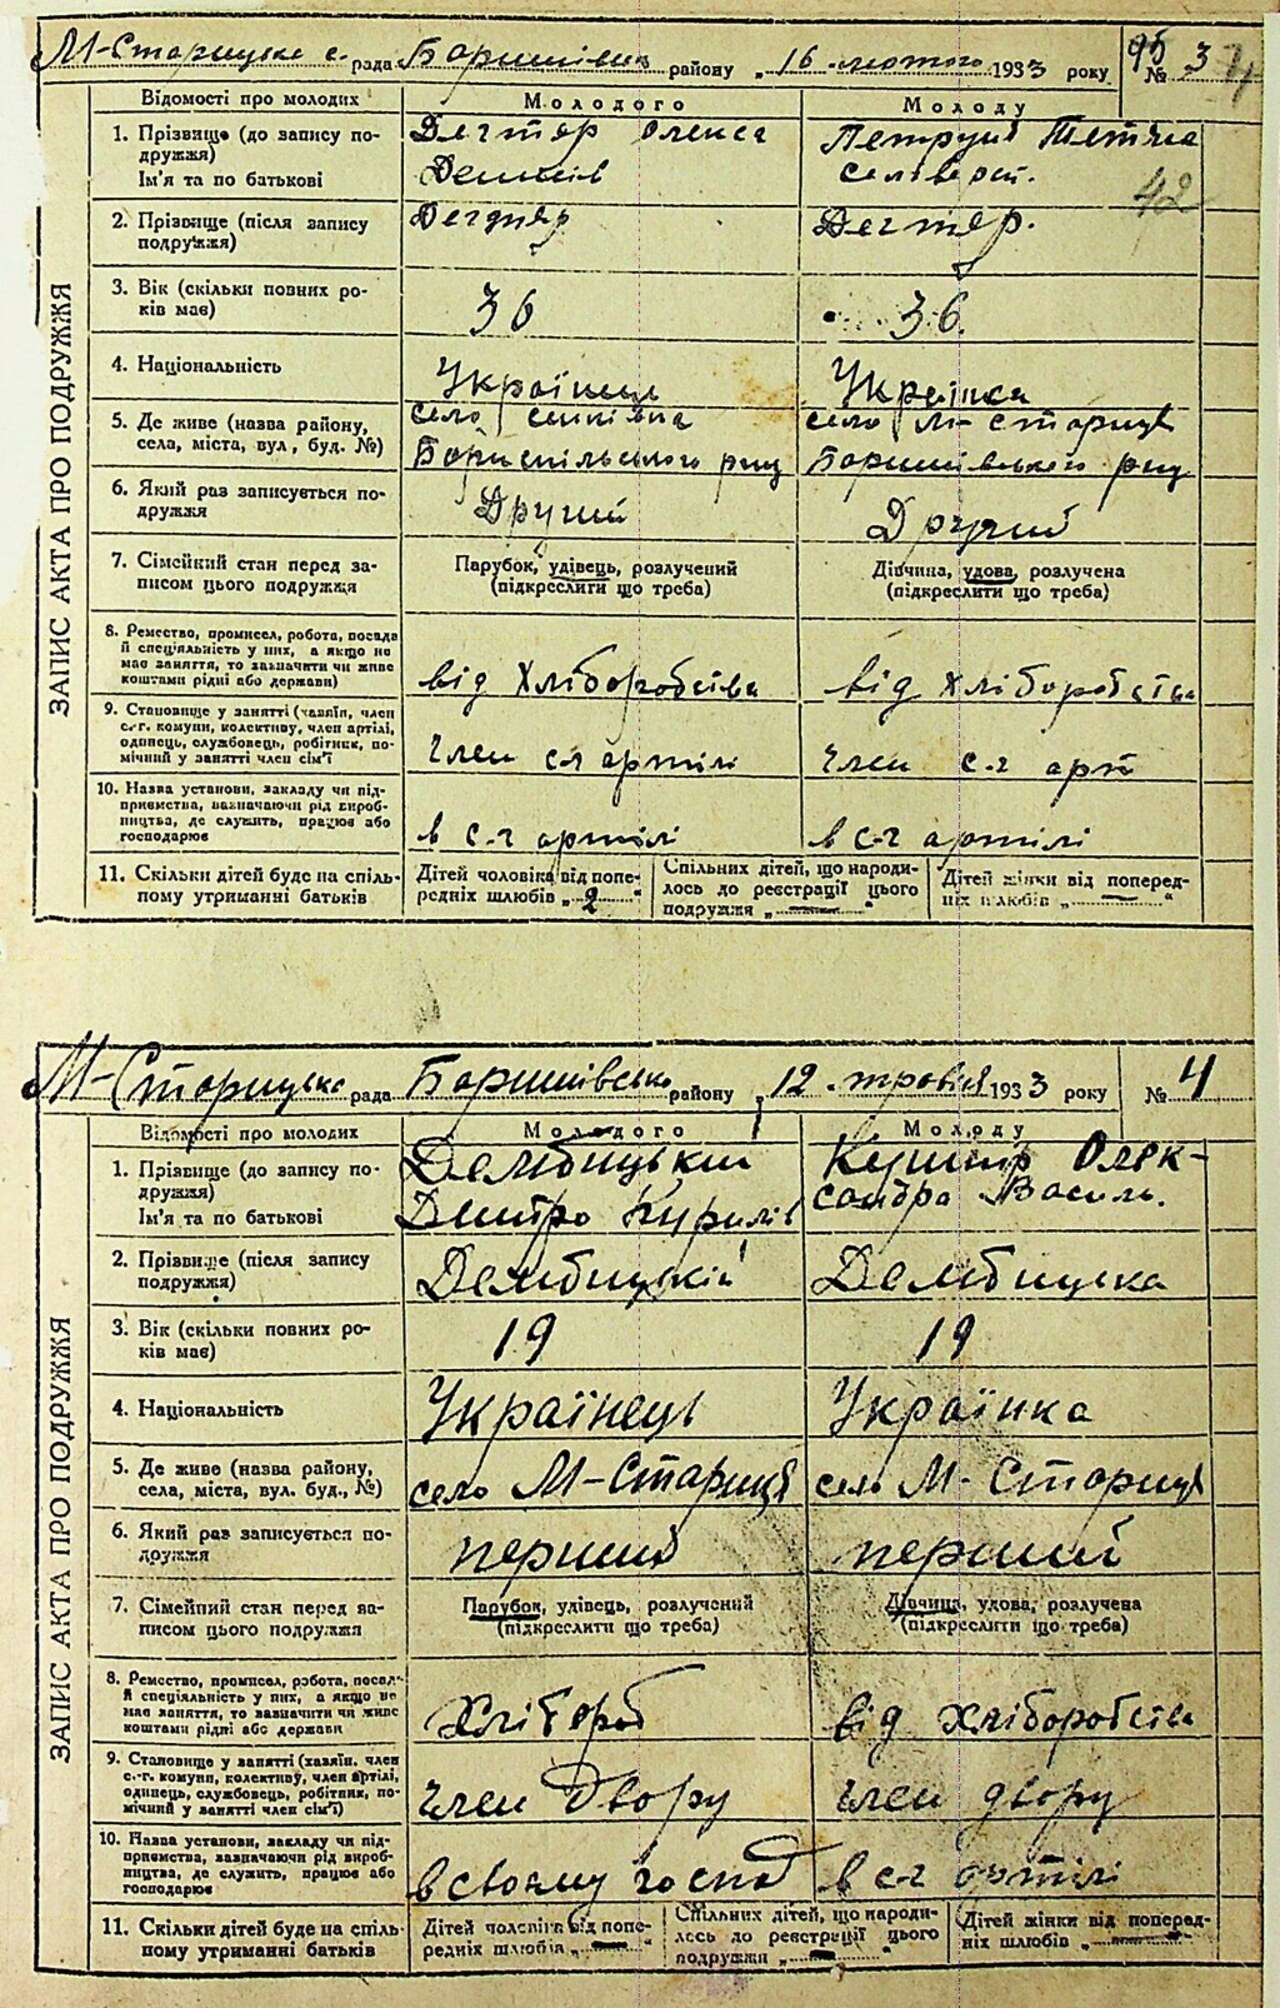 М-Старицька с. рада Баришівськ району „16 лютого 1933 року № 3
95
Відомості про молодих Молодого Молоду
1. Прізвище (до запису по-
дружжя)
Ім'я та по батькові
Дегтяр Олекса
Петруня Тетяна
42
2. Прізвище (після запису
подружжя)
Дегтяр
Дегтяр.
3. Вік (скільки повних ро-
ків має)
36
36.
4. Національність
Українець
Українка
5. Де живе (назва району,
села, міста, вул, буд. №)
село
Бориспільського рну
село М-Стариця
Баришівського рну
6. Який раз записується по-
дружжя
Другий
Другий
7. Сімейний стан перед за-
писом цього подружжя
Парубок, удівець, розлучений
(підкреслити що треба)
Дівчина, удова, розлучена
(підкреслити що треба)
8. Ремество, промисел, робота, посада
й спеціяльність у них, а якщо не
має заняття, то зазначити чи живе
коштами рідні або держави)
від Хліборобства
від хліборобства
9. Становище у занятті (хазяїн, член
с.-г. комуни, колективу, член артілі,
одинець, службовець, робітник, по-
мічний у занятті член сім'ї
член с-г артілі
член с-г арт
10. Назва установи, закладу чи під-
приємства, вазначаючи рід вироб-
ництва, де служить, працює або
господарює
в с-г артілі
в с-г артілі
11. Скільки дітей буде на спіль-
ному утриманні батьків
Дітей чоловіка від попе-
редніх шлюбів „2“
Спільних дітей, що народи-
лось до реєстрації цього
подружжя „—“
Дітей жінки від поперед-
ніх шлюбів „—“
ЗАПИС АКТА ПРО ПОДРУЖЖЯ
М-Старицька рада Баришівсько району „12 травня 1933 року № 4
Відомості про молодих Молодого Молоду
1. Прізвище (до запису по-
дружжя)
Ім'я та по батькові
Дембицький
Дмитро Кирилів
Кушнір Олек-
сандра Василь.
2. Прізвище (після запису
подружжя)
Дембицький
Дембицька
3. Вік (скільки повних ро-
ків має)
19
19
4. Національність
Українець
Українка
5. Де живе (назва району,
села, міста, вул. буд., №)
село М-Стариця
село М-Стариця
6. Який раз записується по-
дружжя
перший
перший
7. Сімейний стан перед за-
писом цього подружжя
Парубок, удівець, розлучений
(підкреслити що треба)
Дівчина, удова, розлучена
(підкреслити що треба)
8. Ремество, промисел, робота, посад
й спеціяльність у них, а якщо не
має заняття, то зазначити чи живе
коштами рідні або держави
Хлібороб
від хліборобства
9. Становище у занятті (хазяїн. член
с.-г. комуни, колективу, член артілі,
одинець, службовець, робітник, по-
мічний у занятті член сім'ї)
член двору
член двору
10. Назва установи, закладу чи під-
приємства, зазначаючи рід вироб-
ництва, де служить, працює або
господарює
в своєму госпд
в с-г артілі
11. Скільки дітей буде на спіль-
ному утриманні батьків
Дітей чоловіка від попе-
редніх шлюбів „—“
Спільних дітей, що народи-
лось до реєстрації цього
подружжя „—“
Дітей жінки від поперед-
ніх шлюбів „—“
ЗАПИС АКТА ПРО ПОДРУЖЖЯ